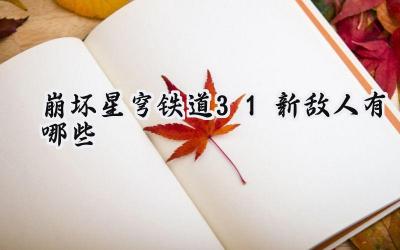 崩坏星穹铁道3 1 新敌人有
哪些